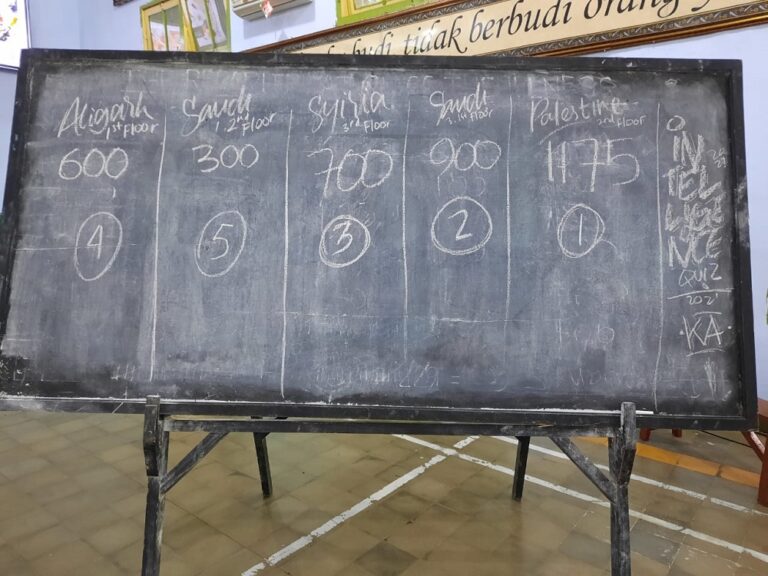 tidak berbudi orang
Aligarh
1st Floor
600
4
Saudi
2nd Floor
300
5
Syiria
3rd Floor
700
3
Saudi
1st Floor
900
2
Palestine
2nd Floor
1175
1
IN
TEL
LIGE
NCE
QUIZ
2021
KA